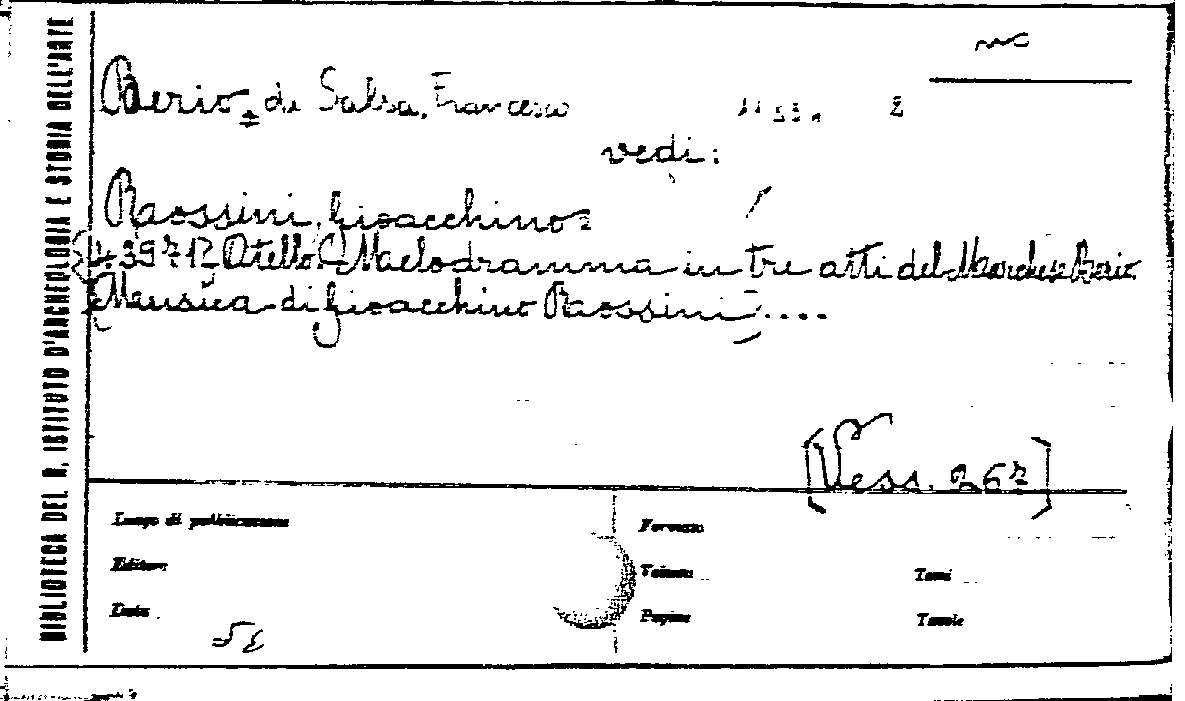 BIBLIOTECA DEL R. ISTITUTO D'ARCHEOLOGIA E STORIA DELL'ARTE
Berio, di Salsa, Francesco
vedi:
Rossini, Gioacchino
Otello. Melodramma in tre atti del Marchese Berio
Musica di Gioacchino Rossini....
[Vess. 267]
Luogo di pubblicazione
Formato
Editore
Volume
Tomi
Data
Pagine
Tavole